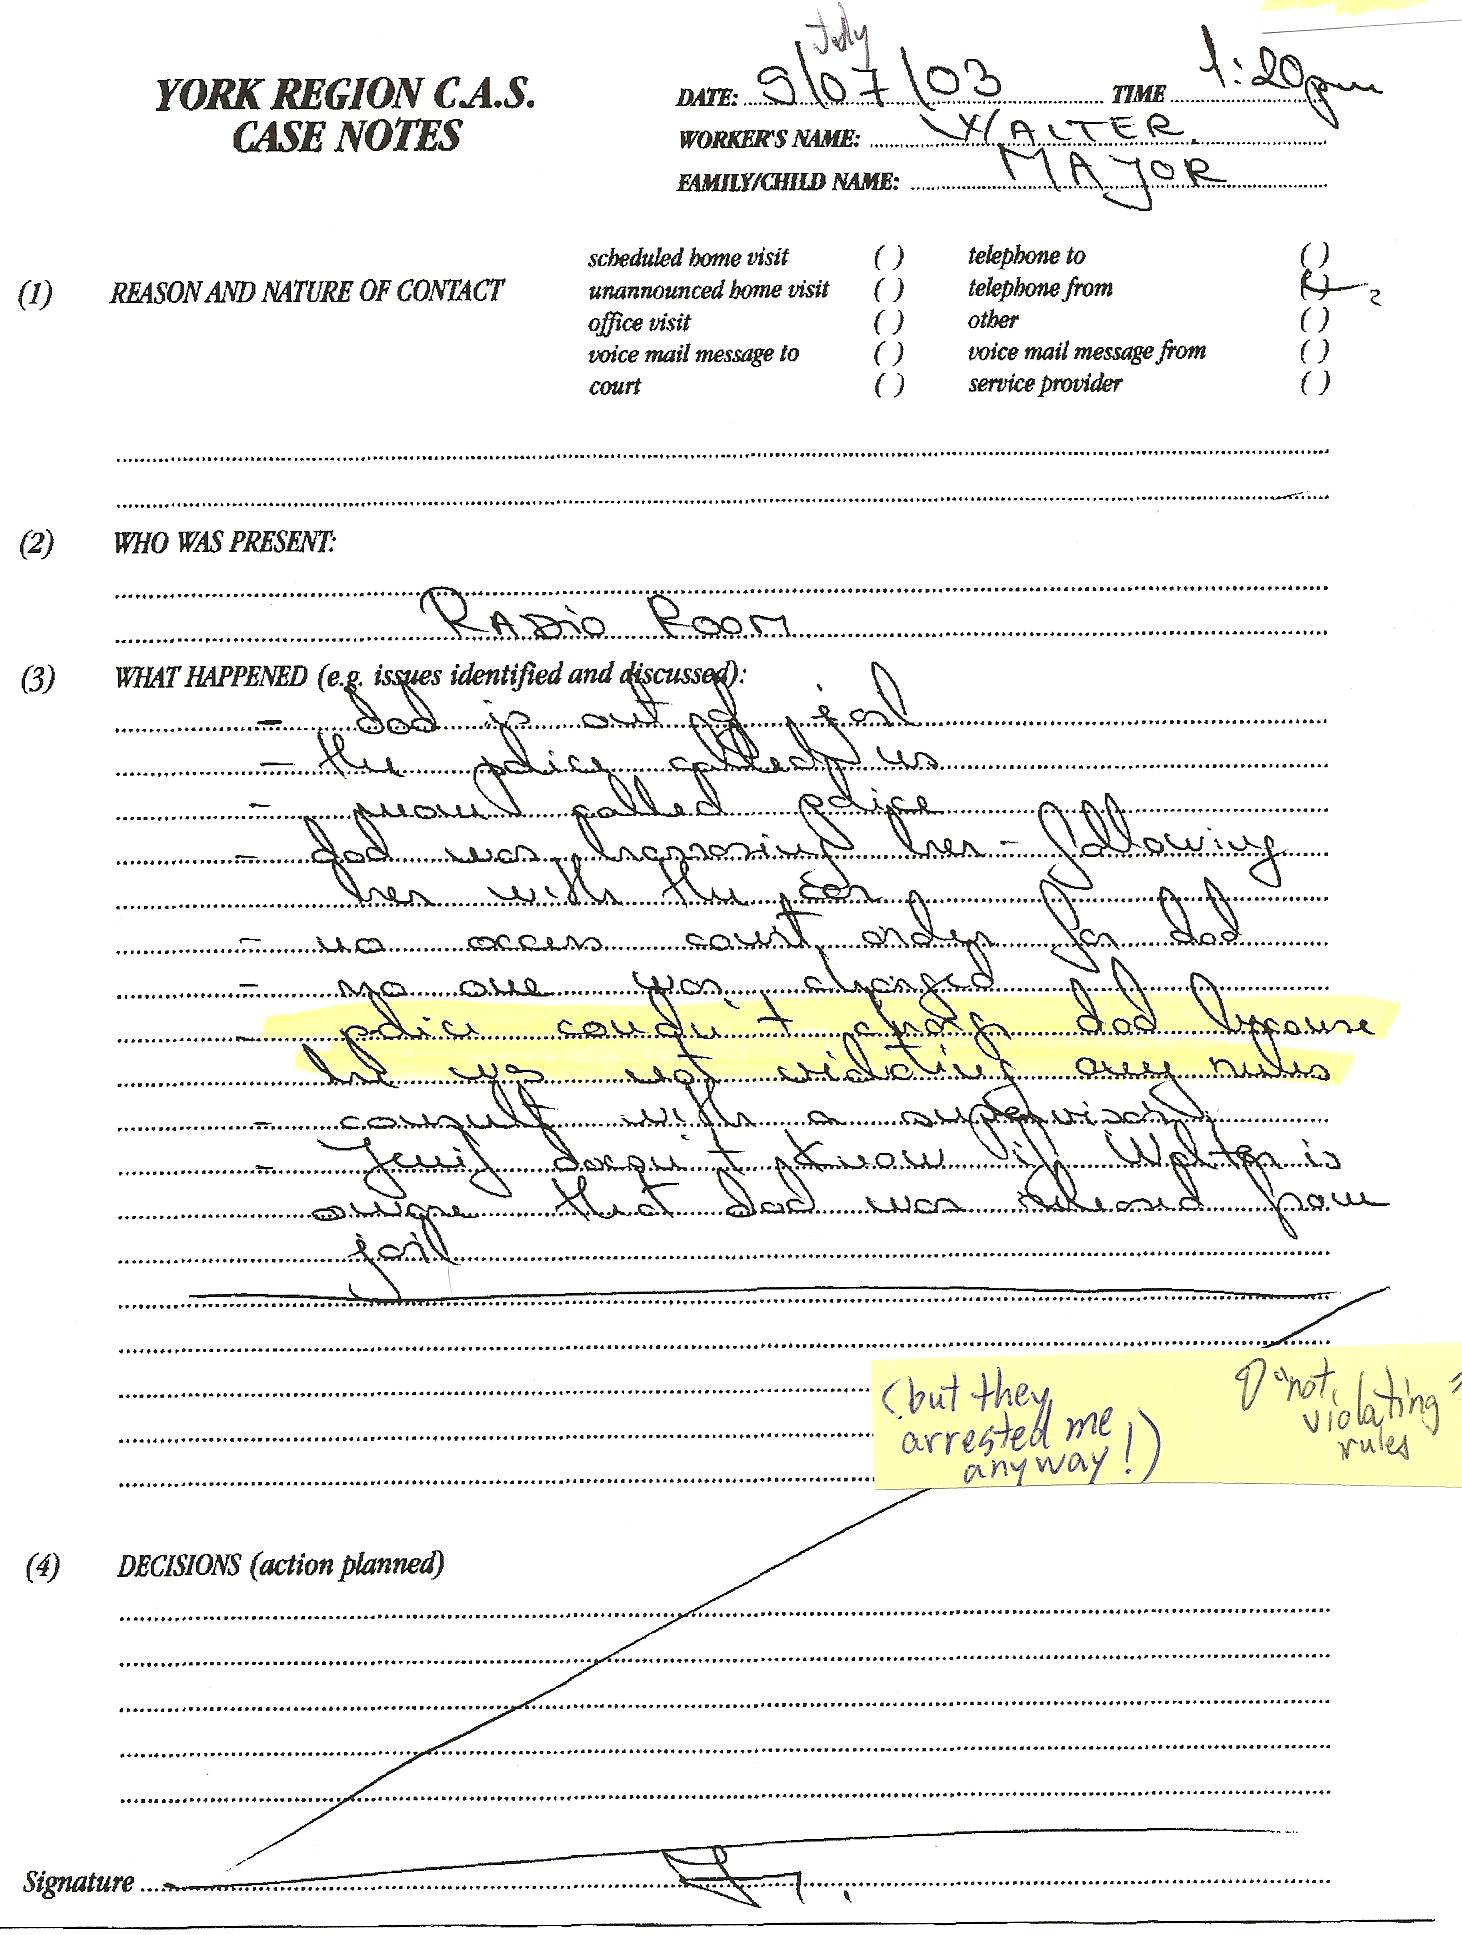 July
YORK REGION C.A.S.
CASE NOTES
DATE: 9/07/03 TIME 1:20pm
WORKER'S NAME: WALTER.
FAMILY/CHILD NAME: MAYOR
(1) REASON AND NATURE OF CONTACT
scheduled home visit ( ) telephone to ( )
unannounced home visit ( ) telephone from ( )
office visit ( ) other ( )
voice mail message to ( ) voice mail message from ( )
court ( ) service provider ( )
(2) WHO WAS PRESENT:
RADIO ROOM
(3) WHAT HAPPENED (e.g. issues identified and discussed):
- dad is out of jail
- the police called us
- mom called police
- dad was harrasing her - following
her with the car
- no access court order for dad
- no one was charged
- police coudn't charge dad because
he was not violating any rules
- consult with a supervisor
- doesn't know if Walter is
aware that dad was released from
jail
(but they
arrested me
anyway!)
"not
violating"
rules
(4) DECISIONS (action planned)
Signature